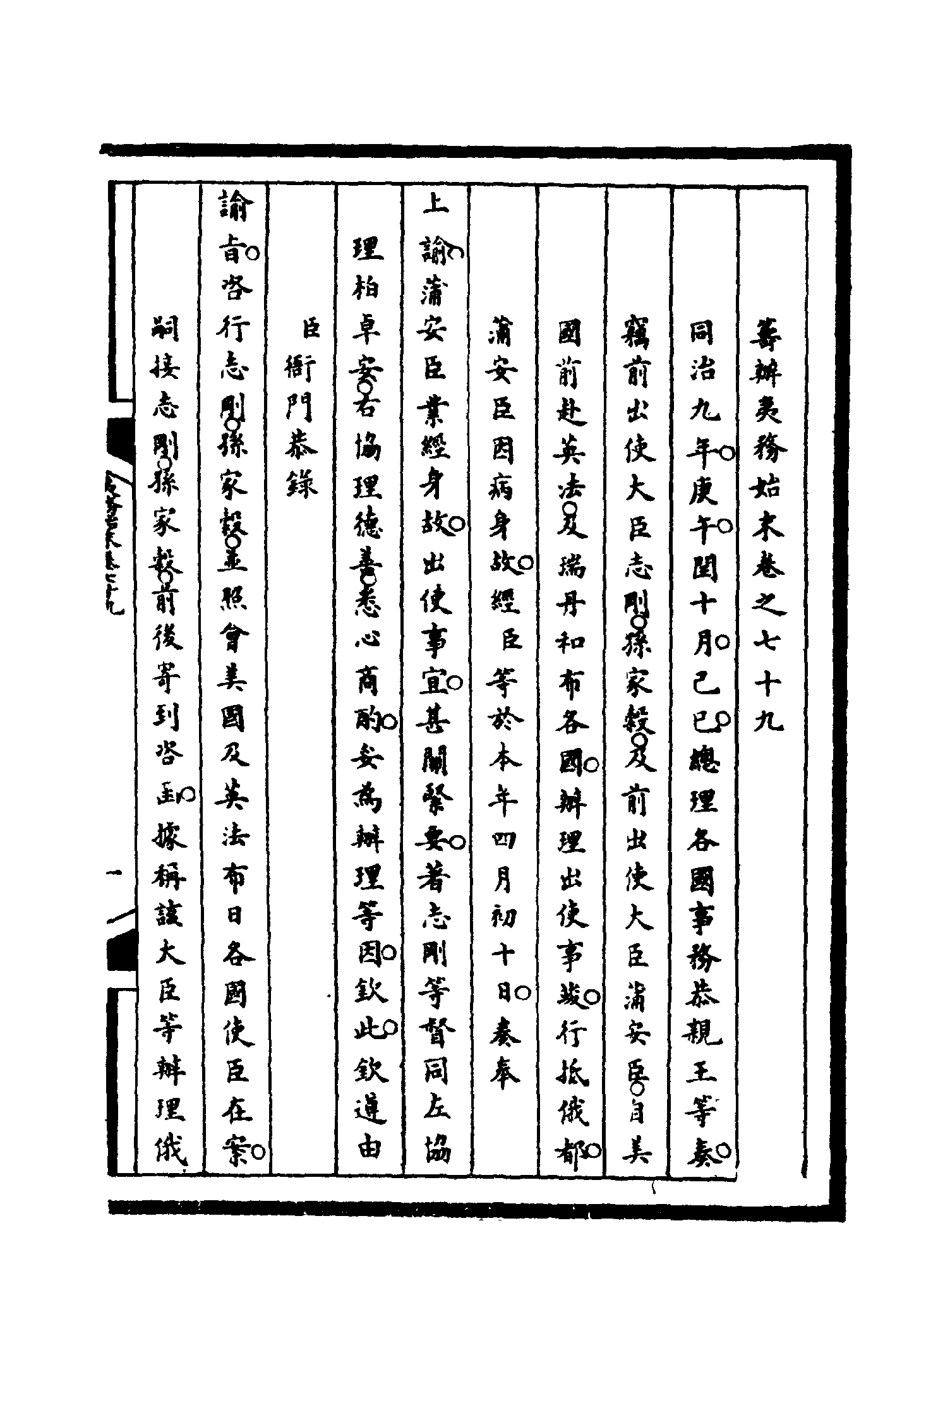 籌辦夷務始末卷之七十九
同治九年。庚午。閏十月。己巳。總理各國事務恭親王等奏。
竊前出使大臣志剛。孫家穀。及前出使大臣蒲安臣。自美
國前赴英法。及瑞丹和布各國。辦理出使事竣。行抵俄都。
蒲安臣因病身故。經臣等於本年四月初十日。奏奉
上諭。蒲安臣業經身故。出使事宜。甚關緊要。著志剛等督同左協
理柏卓安。右協理德善。悉心商酌。妥為辦理等因。欽此。欽遵由
臣衙門恭錄
諭旨。咨行志剛。孫家穀。並照會美國及英法布日各國使臣在案。
嗣接志剛。孫家穀。前後寄到咨函。據稱該大臣等辦理俄
一